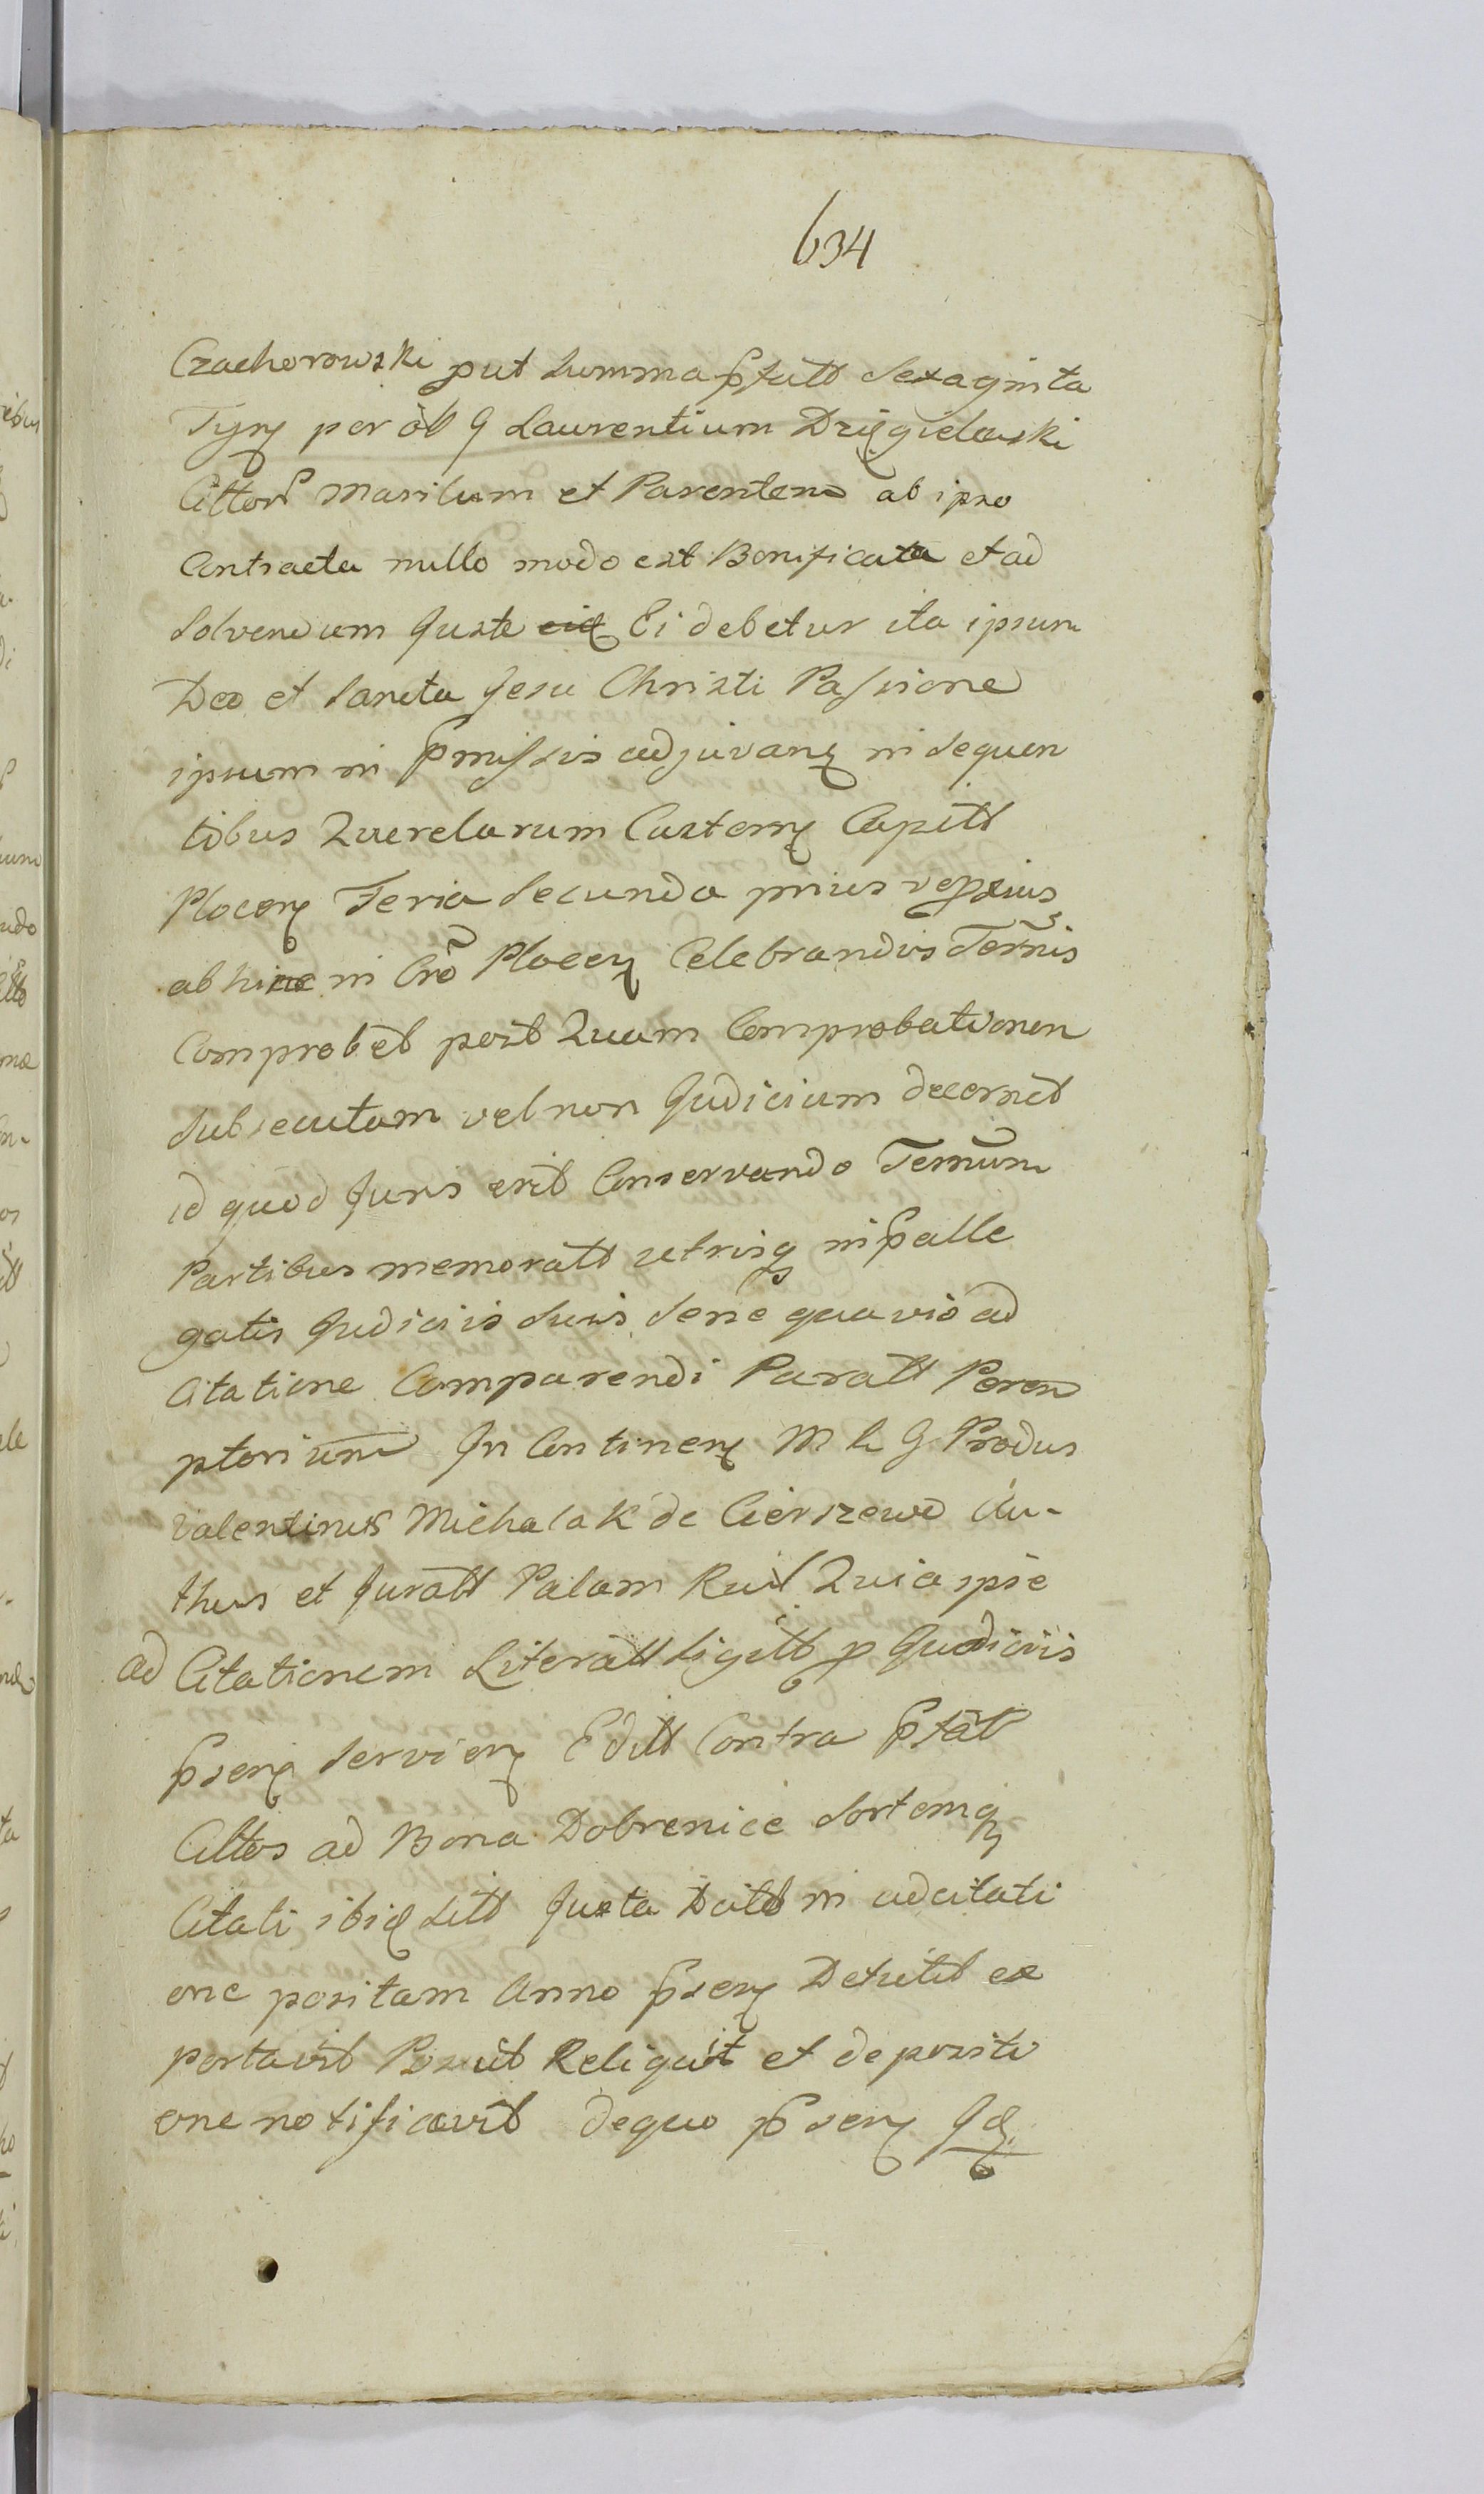 634
Czachorowski put Summa pstatt Sexaginta
Tyṅ per ol G Laurentium Drięgielewski
Cittor Maritum et Parentem ab ipso
Contracta nullo modo est Bonificata et ad
Solvendum Juste Ei debetur ita ipsum
Deo et Sancta Jesu Christi Passione
ipsum in pmissis adjuvanę in sequen
tibus Querelarum Castren Capitt
Plocen Feria Secunda prius
abhinc in Cro Plocen Celebrandis Ternis
Comprobet post Quam Comprobationem
Subsecutam vel non Judicium decernet
id quod Juris erit Conservando Ternum
Partibus memoratt utrisq in palle
gatis Judiciis Suis Sene quavis ad
Citatione Comparendi Paratt Perem
ptorium In Continen M h G Produs
Valentinus Michalak de Cierszewo Au-
thus et Juratt Palam Ruit Quia ipse
ad Citationem Literatt Sigitt p Judiciis
psen Servien Editt Contra pstat
Cittos ad Bona Dobrenice Sortemq
Citati ibiq Sitt Juxta Datt in adcitati
one positam Anno psen Detulit ex
portavit Posuit Reliquit et depositi
one notificavit de quo psen